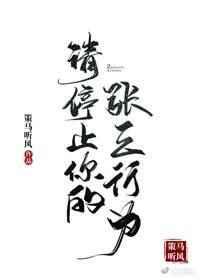 请停止你的
张三行为
策马听风
作品
策马
听风